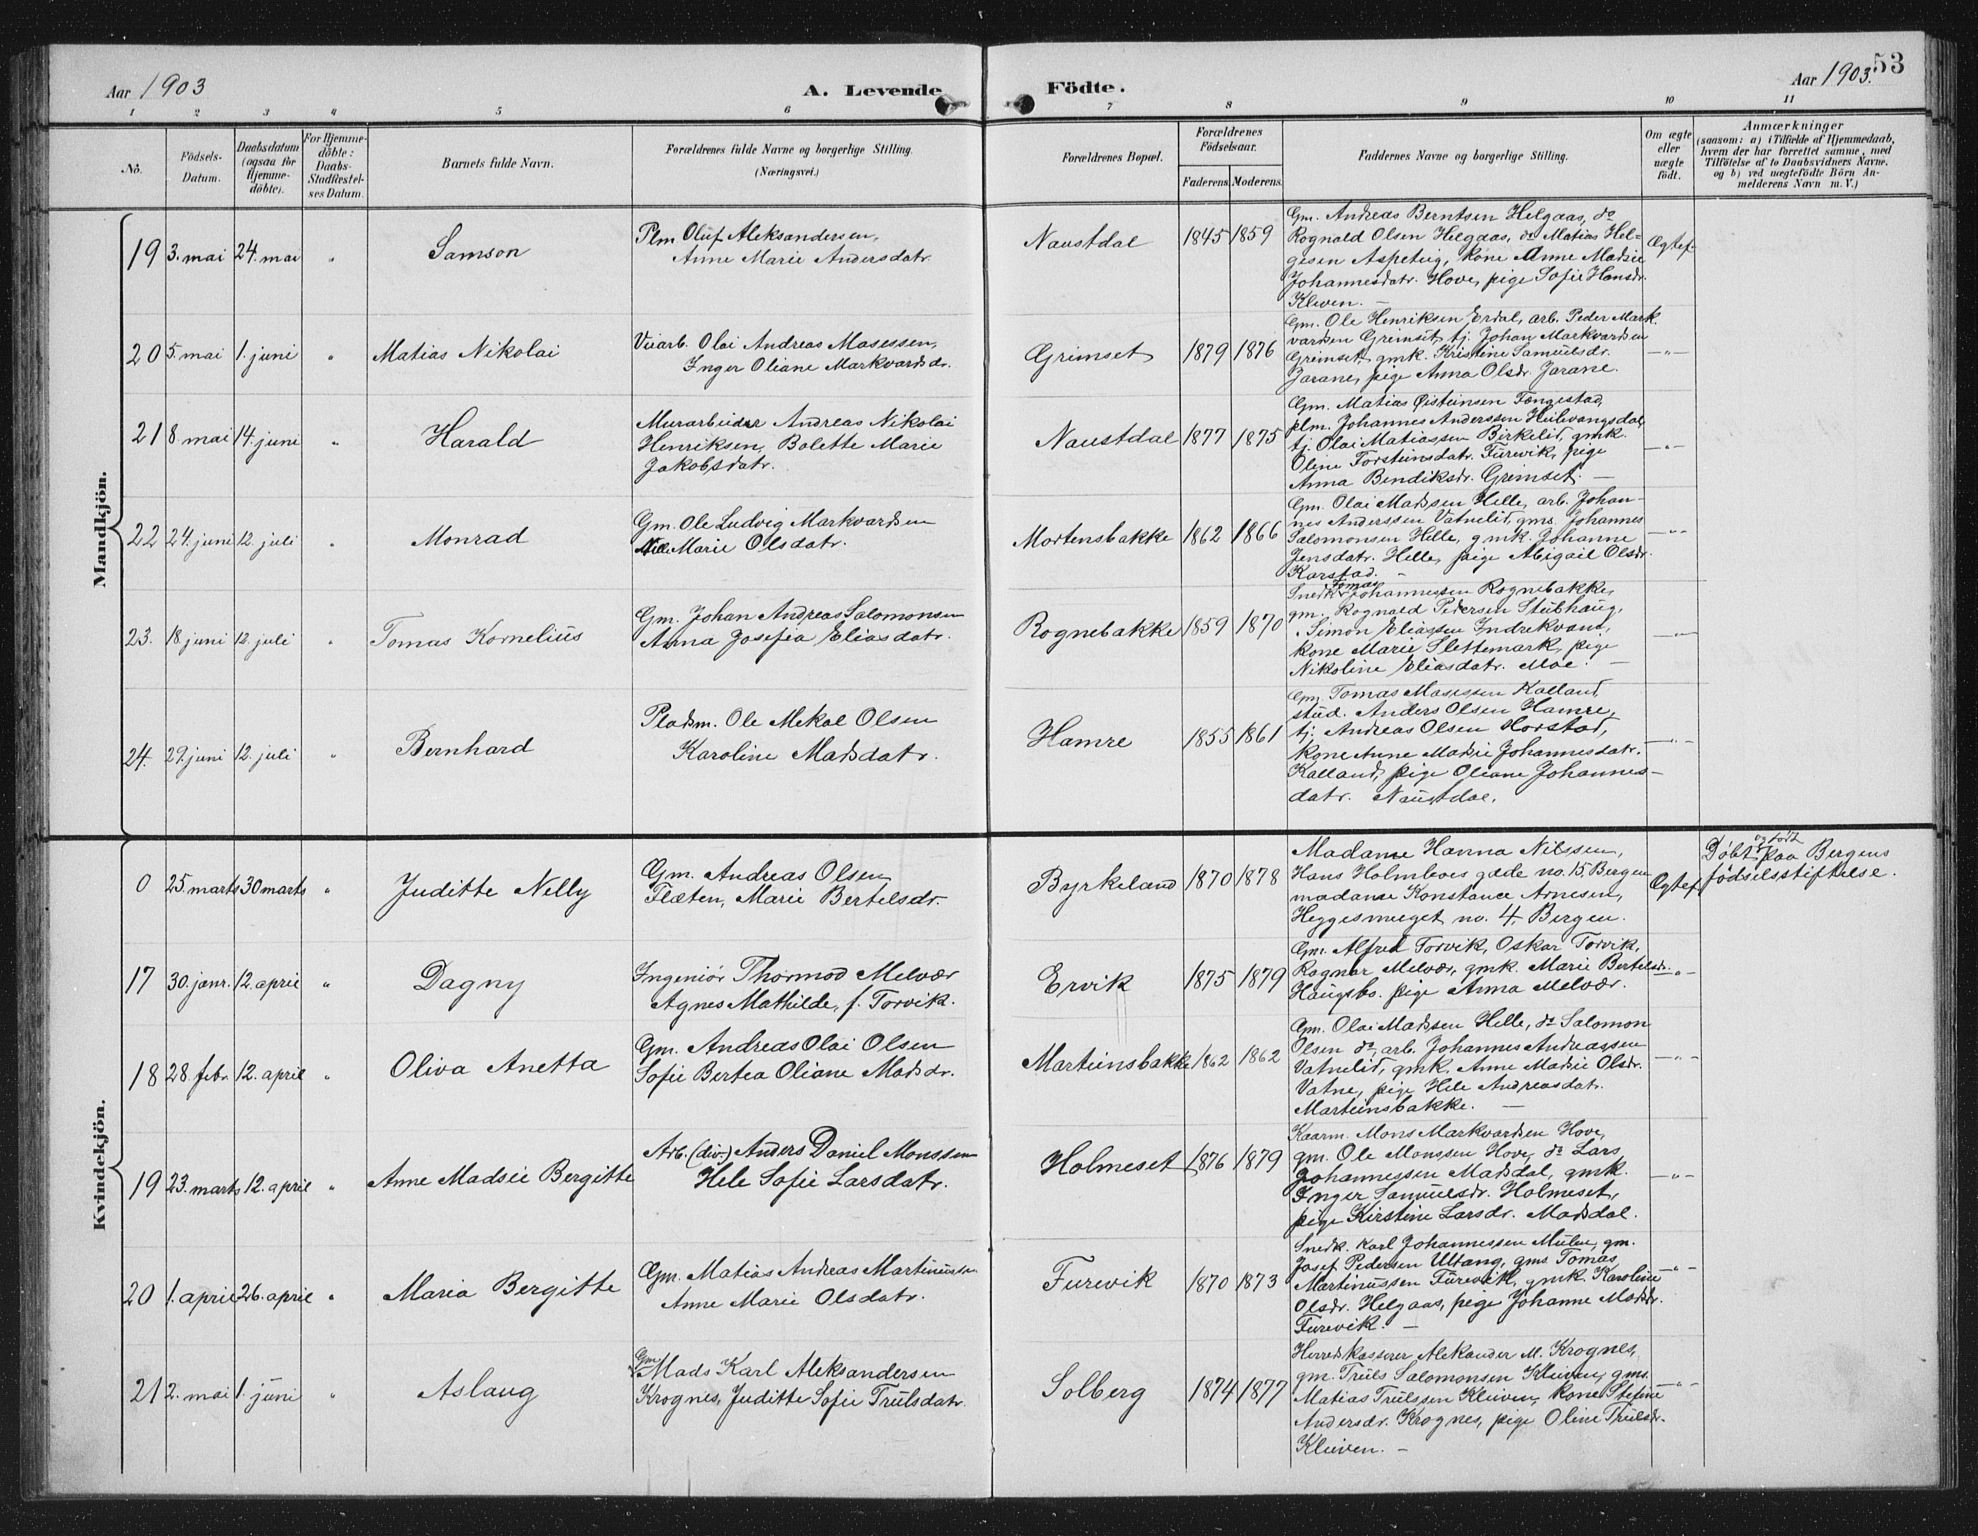 Aar 1903
A. Levende
Födte.
Aar 1903.
53
1 2 3 4 5 6 7 8 9 10 11
No.
Födsels-
Datum.
Daabsdatum
(ogsaa for
Hjemme-
döbte).
For Hjemme-
döbte:
Daabs-
Stadfæstel-
ses Datum.
Barnets fulde Navn.
Forældrenes fulde Navne og borgerlige Stilling.
(Næringsvei.)
Forældrenes Bopæl.
Forældrenes
Födselsaar.
Faderens. Moderens.
Faddernes Navne og borgerlige Stilling.
Om ægte
eller
uægte
födt.
Anmærkninger
(saasom: a) i Tilfælde af Hjemmedaab,
hvem der har forrettet samme, med
Tilföielse af to Daabsvidners Navne,
og b) ved uægtefödte Börn An-
melderens Navn m. V.)
Mandkjön.
19 3. mai 24. mai " Samson
Plm. Oluf Aleksandersen,
Anne Marie Andersdatr.
Naustdal 1845 1859
Gm. Andreas Berntsen Helgaas, do
Rognald Olsen Helgaas, do Matias Hel-
gesen Aspeteig, kone Anne Madsie
Johannesdatr. Hove, pige Sofie Hansdr.
Kleven. —
Ægtef.
20 5. mai 1. juni " Matias Nikolai
Veiarb. Olai Andreas Masessen,
Inger Oliane Markvardsdr.
Grimset 1879 1876
Gm. Ole Henriksen Erdal, arb. Peder Mark
vardsen Grimset, tj. Johan Markvardsen
Grimset, gmk. Kristine Samuelsdr.
Jarane, pige Anna Olsdr. Jarane.
— " —
21 8. mai 14. juni " Harald
Murarbeider Andreas Nikolai
Henriksen, Bolette Marie
Jakobsdatr.
Naustdal 1877 1875
Gm. Matias Øisteinsen Fængestad,
plm. Johannes Anderssen Heilevangsdal,
tj. Olai Matiassen Birkelid, gmk.
Oline Torsteinsdatr. Furevik, pige
Anna Bendiksdr. Grimset. —
— " —
22 24. juni 12. juli " Monrad
Gm. Ole Ludvig Markvardsen
Marie Olsdatr.
Mortensbakke 1862 1866
Gm. Olai Madsen Helle, arb. Johan-
nes Anderssen Vatnelid, gms. Johannes
Salomonsen Helle, gmk. Johanne
Jensdatr. Helle, pige Abigael Olsdr.
Karstad. —
— " —
23. 18 juni 12. juli " Tomas Kornelius
Gm. Johan Andreas Salomonsen
Anna Josefia Eliasdatr.
Rognebakke 1859 1870
Snedk. Tomas Johannessen Rognebakke,
gm. Rognald Pedersen Steihaug,
Simon Eliassen Indrekvam,
kone Marie Slettemark, pige
Nikoline Eliasdatr. Moe. —
— " —
24. 29. juni 12. juli " Bernhard
Pladsm. Ole Mekal Olsen
Karoline Madsdatr.
Hamre 1855 1861
Gm. Tomas Masessen Kalland,
stud. Anders Olsen Hamre,
tj. Andreas Olsen Horstad,
kone Anne Madsie Johannesdatr.
Kalland, pige Oliane Johannes-
datr. Naustdal.
— " —
Kvindekjön.
0 25. marts 30 marts " Juditte Nelly
Gm. Andreas Olsen
Flæten, Marie Bertelsdr.
Byrkeland 1870 1878
Madame Hanna Nilssen,
Hans Holmboes gade no. 15, Bergen
madame Konstance Arnesen,
Heggesmuget no. 4, Bergen.
Ægtef.
Døbt og født paa Bergens
fødselsstiftelse.
17 30. janr. 12. april " Dagny
Ingeniør Thormod Melvær
Agnes Mathilde, f. Torvik.
Ervik 1875 1879
Gm. Alfred Torvik, Oskar Torvik,
Ragnar Melvær, gmk. Marie Bertelsdr.
Haugsbø. pige Anna Melvær.
— " —
18 28. febr. 12. april " Oliva Anetta
Gm. Andreas Olai Olsen
Sofie Bertea Oliane Madsdr.
Marteinsbakke 1862 1862
Gm. Olai Madsen Helle, do Salomon
Olsen do, arb. Johannes Andreassen
Vatnelid, gmk. Anne Madsie Olsdr.
Vatne, pige Hele Andreasdatr.
Marteinsbakke. —
— " —
19 23. marts 12. april " Anne Madsie Bergitte
Arb. (div.) Anders Daniel Monssen
Hele Sofie Larsdatr.
Holmeset 1876 1879
Kaarm. Mons Markvardsen Hove,
gm. Ole Monssen Hove, do Lars
Johannessen Madsdal, gmk.
Inger Samuelsdr. Holmeset,
pige Kirstine Larsdr. Madsdal.
— " —
20 1. april 26. april " Maria Bergitte
Gm. Matias Andreas Martinussen
Anne Marie Olsdatr.
Furevik 1870 1873
Snedk. Karl Johannessen Mulen, gm.
Josef Pedersen Ultang, gms. Tomas
Martinussen Furevik, gmk. Karoline
Olsdr. Helgaas, pige Johanne Madsdr.
Furevik. —
— " —
21 2. mai 1. juni " Aslaug
Gm. Mads Karl Aleksandersen
Krognes, Juditte Sofie Trulsdatr.
Solberg 1874 1877
Herredskasserer Aleksander M. Krognes,
gm. Truls Salomonsen Kleiven, gms.
Matias Trulssen Kleiven, kone Stefine
Andersdr. Krognes, pige Oline Trulsdr.
Kleiven. —
— " —